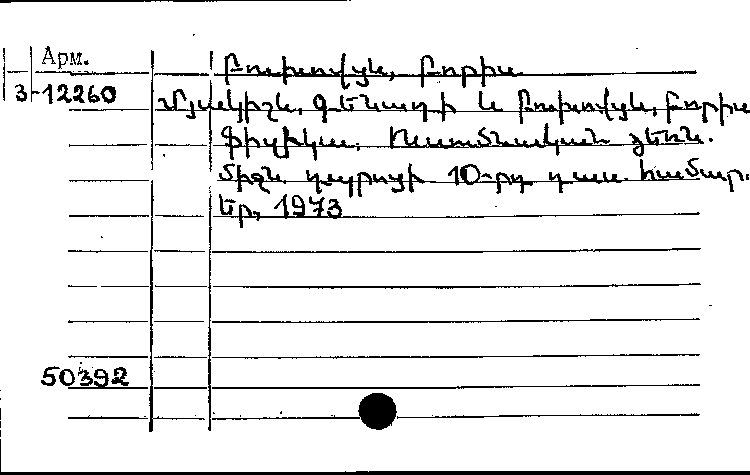 Арм.
Բուխովցև, Բորիս
3-12260 Մյակիշև, Գենադի և Բուխովցև, Բորիս
Ֆիզիկա. Ուսումնական ձեռն.
միջն. դպրոցի 10-րդ դաս. համար.
Եր., 1973
50392